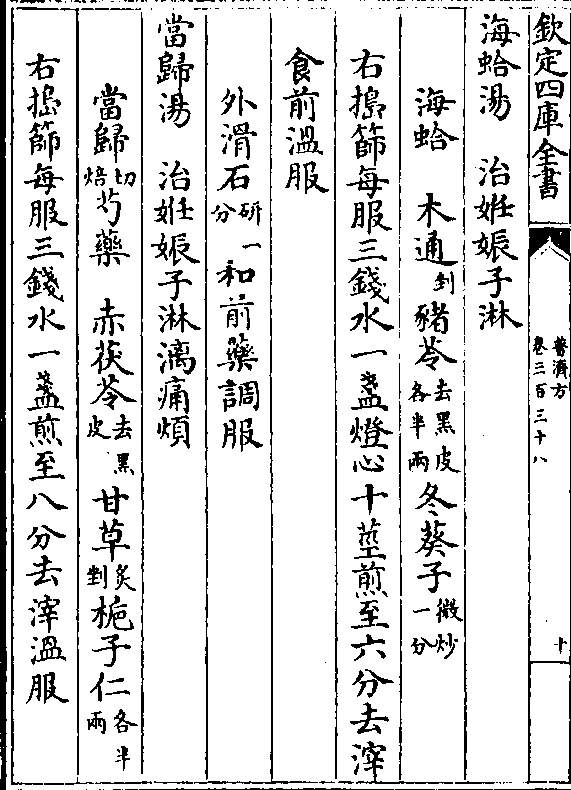 欽定四庫全書
普濟方
卷三百三十八
十
海蛤湯　治姙娠子淋
海蛤　木通剉　豬苓去黑皮各半兩　冬葵子微炒一分
右搗篩每服三錢水一盞燈心十莖煎至六分去滓
食前溫服
外滑石研一分和前藥調服
當歸湯　治姙娠子淋漓痛煩
當歸切焙　芍藥　赤茯苓去黑皮　甘草炙剉　梔子仁各半兩
右搗篩每服三錢水一盞煎至八分去滓溫服